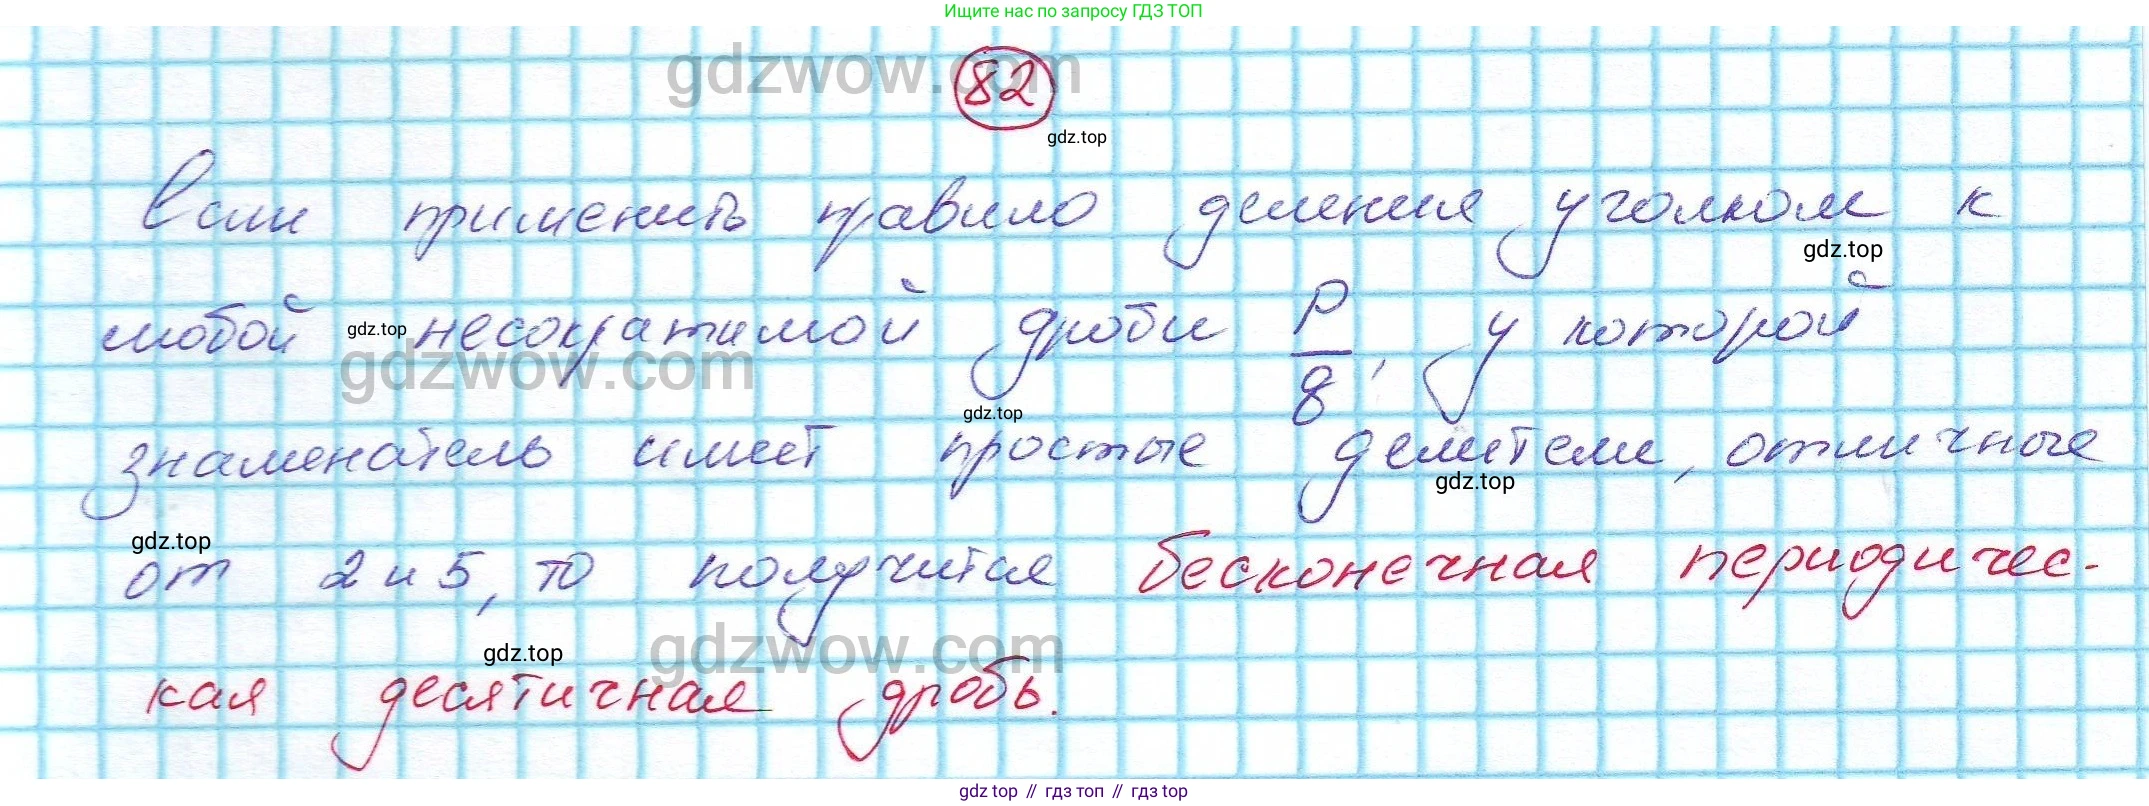 Ищите нас по запросу ГДЗ ТОП
gdzwow.com
82
gdz.top
Если применить правило деления уголком к
gdz.top
любой gdz.top несократимой дроби p/q, у которой
gdzwow.com
gdz.top
знаменатель имеет простые делители, отличные
gdz.top
gdz.top
от 2 и 5, то получится бесконечная периодичес-
gdz.top gdzwow.com
кая десятичная дробь.
gdz top // гдз топ // гдз top